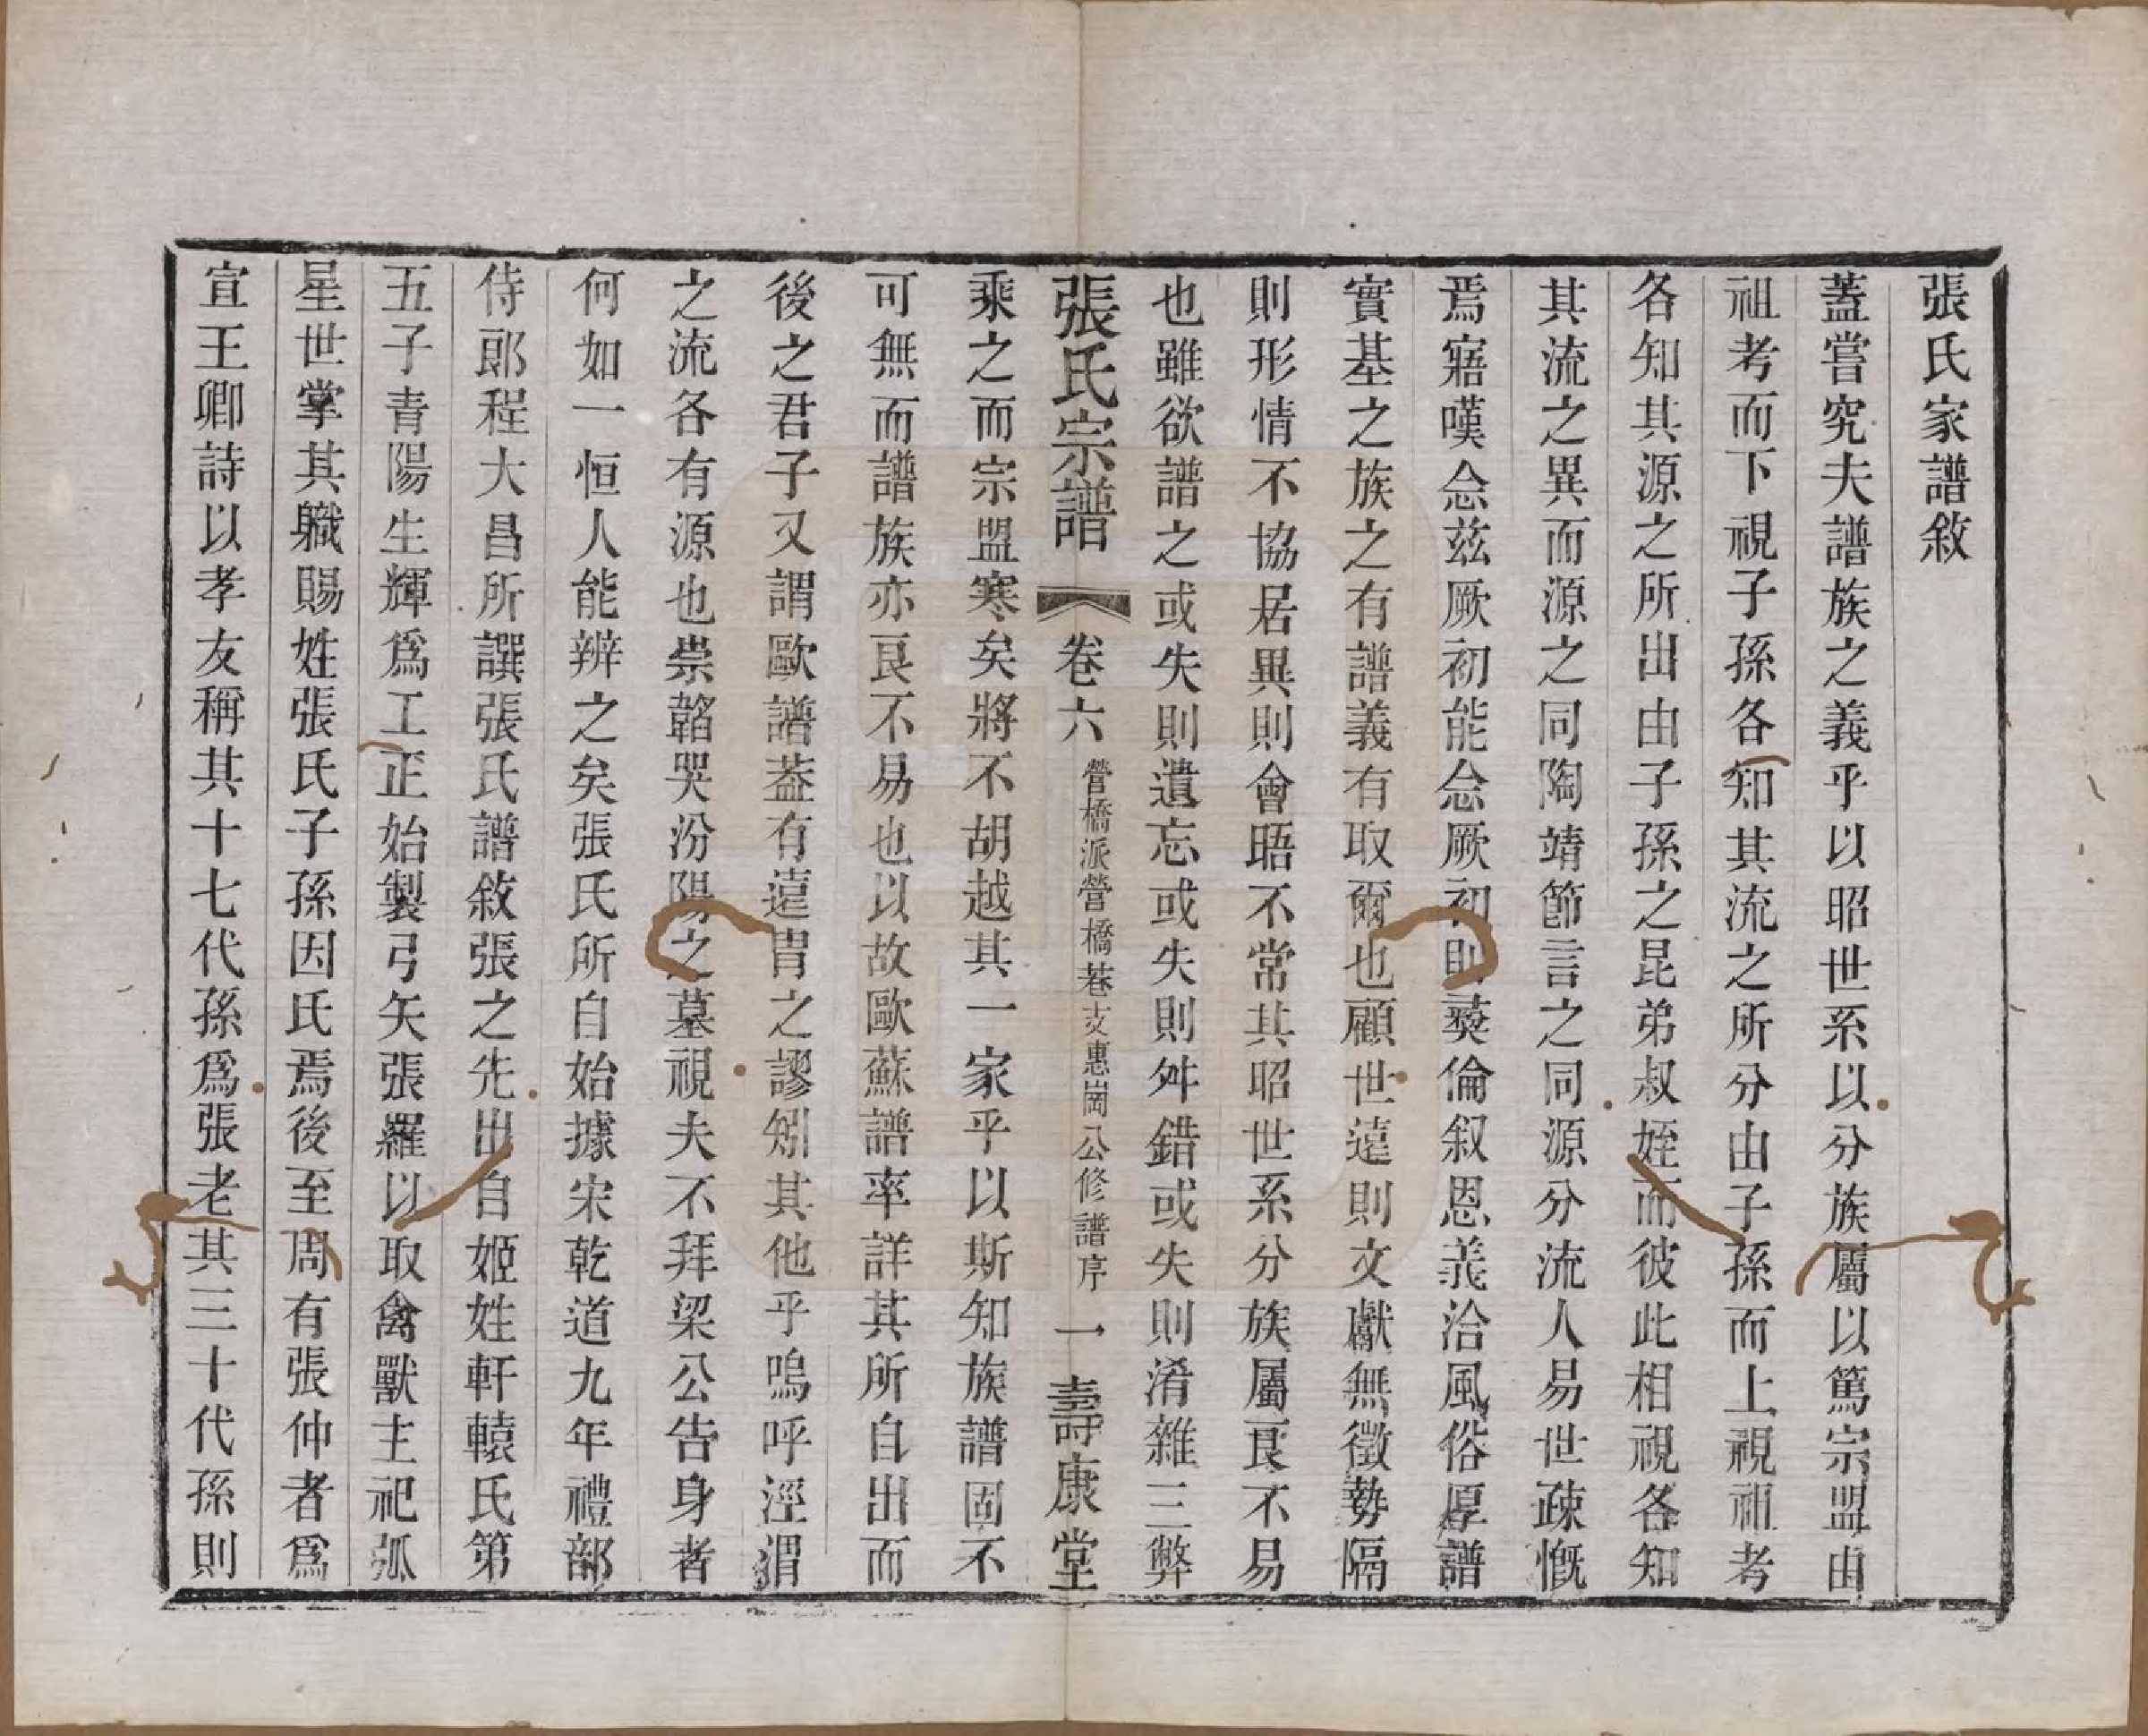 張氏家譜敘
蓋嘗究夫譜族之義乎以昭世系以分族屬以篤宗盟由
祖考而下視子孫各知其流之所分由子孫而上視祖考
各知其源之所出由子孫之昆弟叔姪而彼此相視各知
其流之異而源之同陶靖節言之同源分流人易世疎慨
焉寤嘆念茲厥初能念厥初則彛倫叙恩義洽風俗厚譜
實基之族之有譜義有取爾也顧世遠則文獻無徵勢隔
則形情不協居異則會晤不常其昭世系分族屬良不易
也雖欲譜之或失則遺忘或失則舛錯或失則淆雜三弊
張氏宗譜 卷六 營橋派營橋巷支惠崗公修譜序 一 壽康堂
乘之而宗盟寒矣將不胡越其一家乎以斯知族譜固不
可無而譜族亦良不易也以故歐蘇譜率詳其所自出而
後之君子又謂歐譜葢有遠冑之謬矧其他乎嗚呼涇渭
之流各有源也崇韜哭汾陽之墓視夫不拜梁公告身者
何如一恒人能辨之矣張氏所自始據宋乾道九年禮部
侍郎程大昌所譔張氏譜敘張之先出自姬姓軒轅氏第
五子青陽生輝爲工正始製弓矢張羅以取禽獸主祀弧
星世掌其職賜姓張氏子孫因氏焉後至周有張仲者爲
宣王卿詩以孝友稱其十七代孫爲張老其三十代孫則